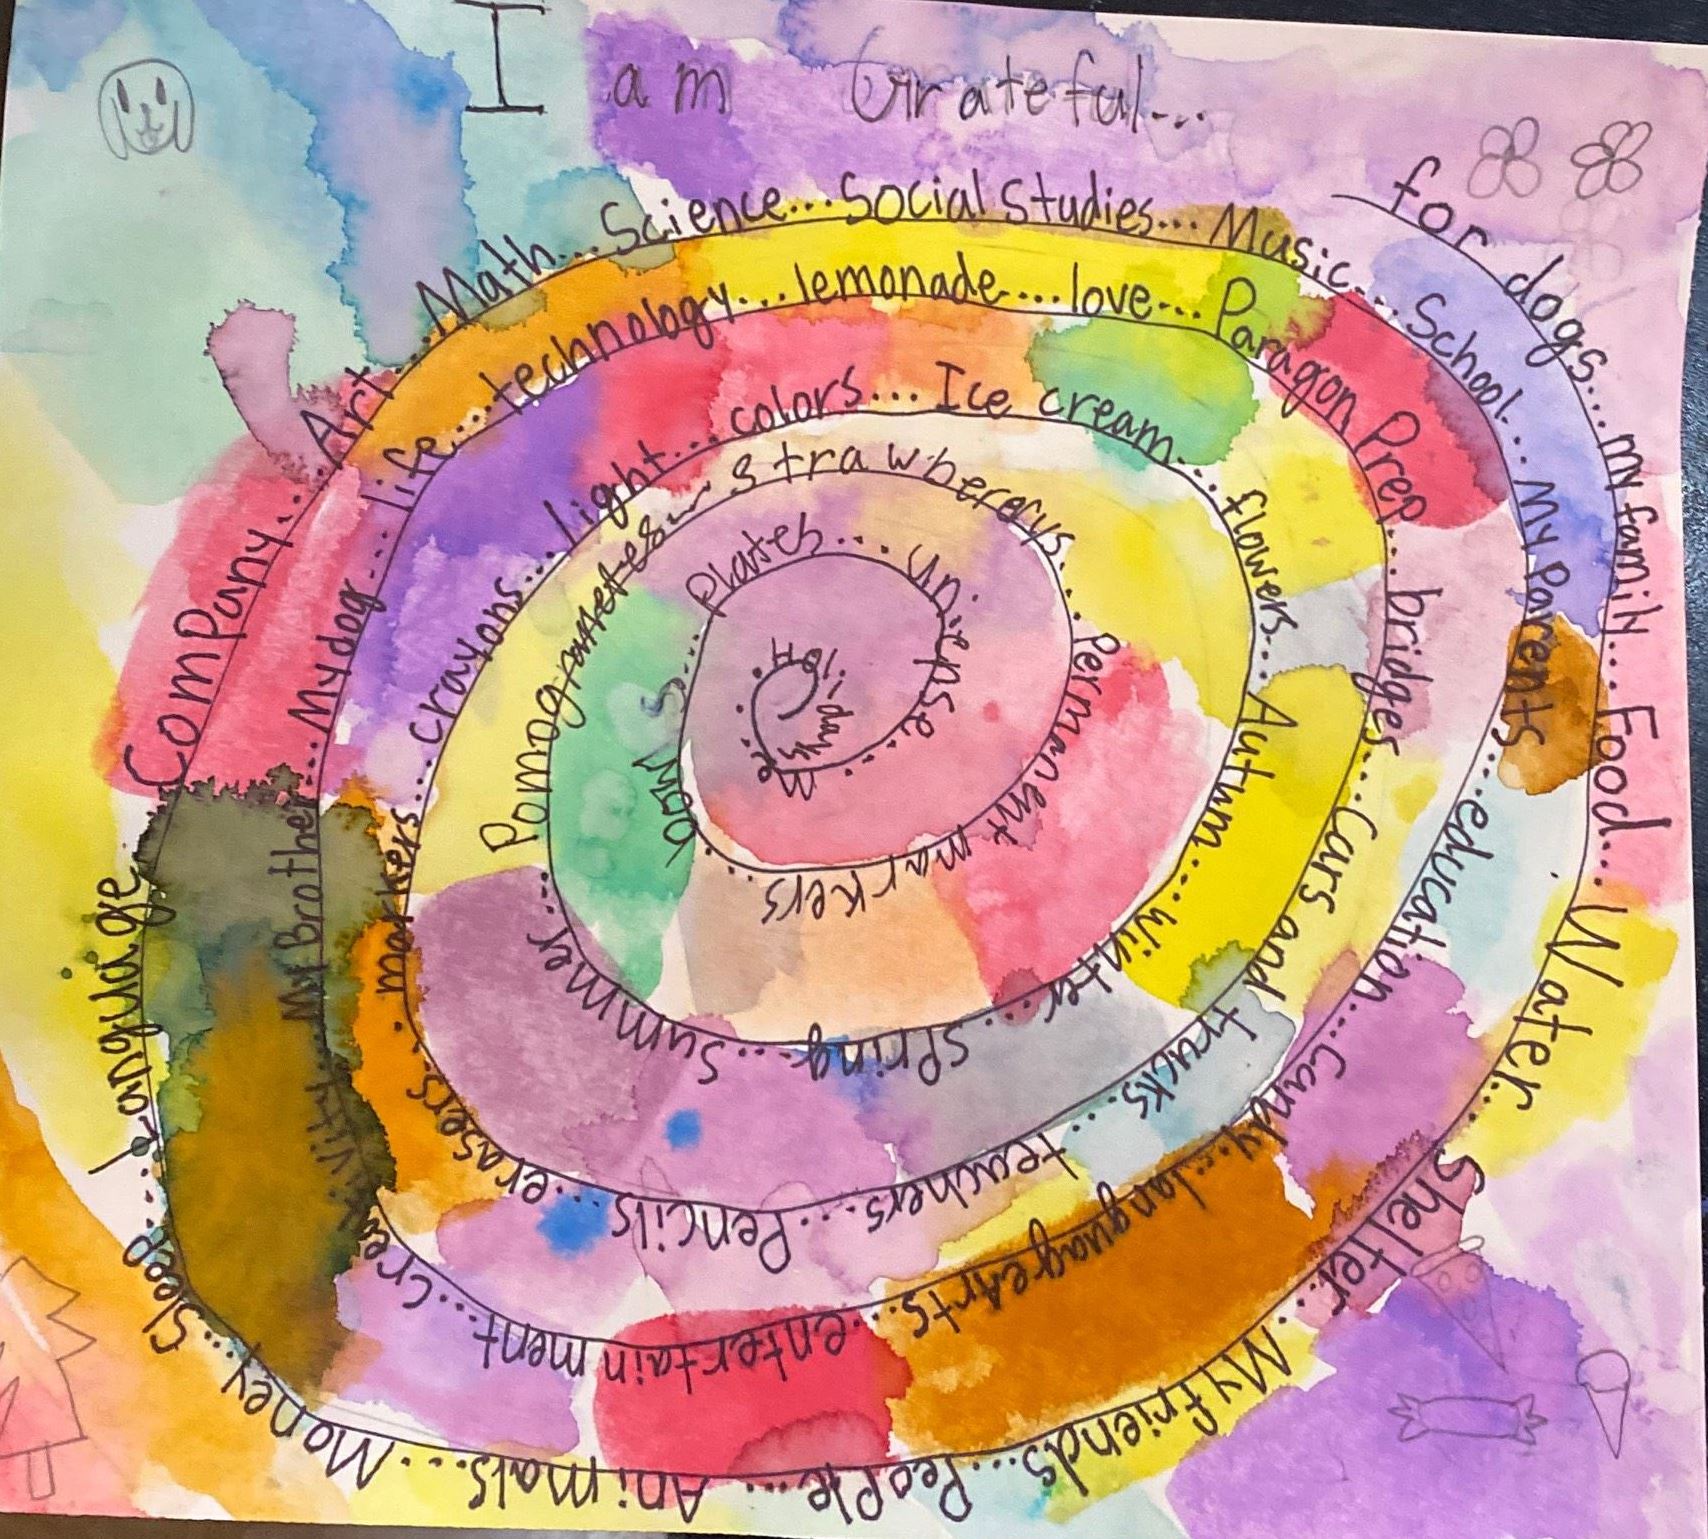 I am Grateful...
for dogs... my family... Food... Water... Shelter... My friends... People... Animals... Money... Sleep... Language... Company... Art... Math... Science... Social Studies... Music... School... My Parents... education... candy... language Arts... entertainment... Creativity... My Brother... My dog... life... technology... lemonade... love... Paragon Prep... bridges... Cars and trucks... teachers... Pencils... erasers... markers... crayons... light... colors... Ice cream... flowers... Autumn... winter... Spring... Summer... strawbererys... Permanent markers... bowls... Plates... universe... me... Holidays